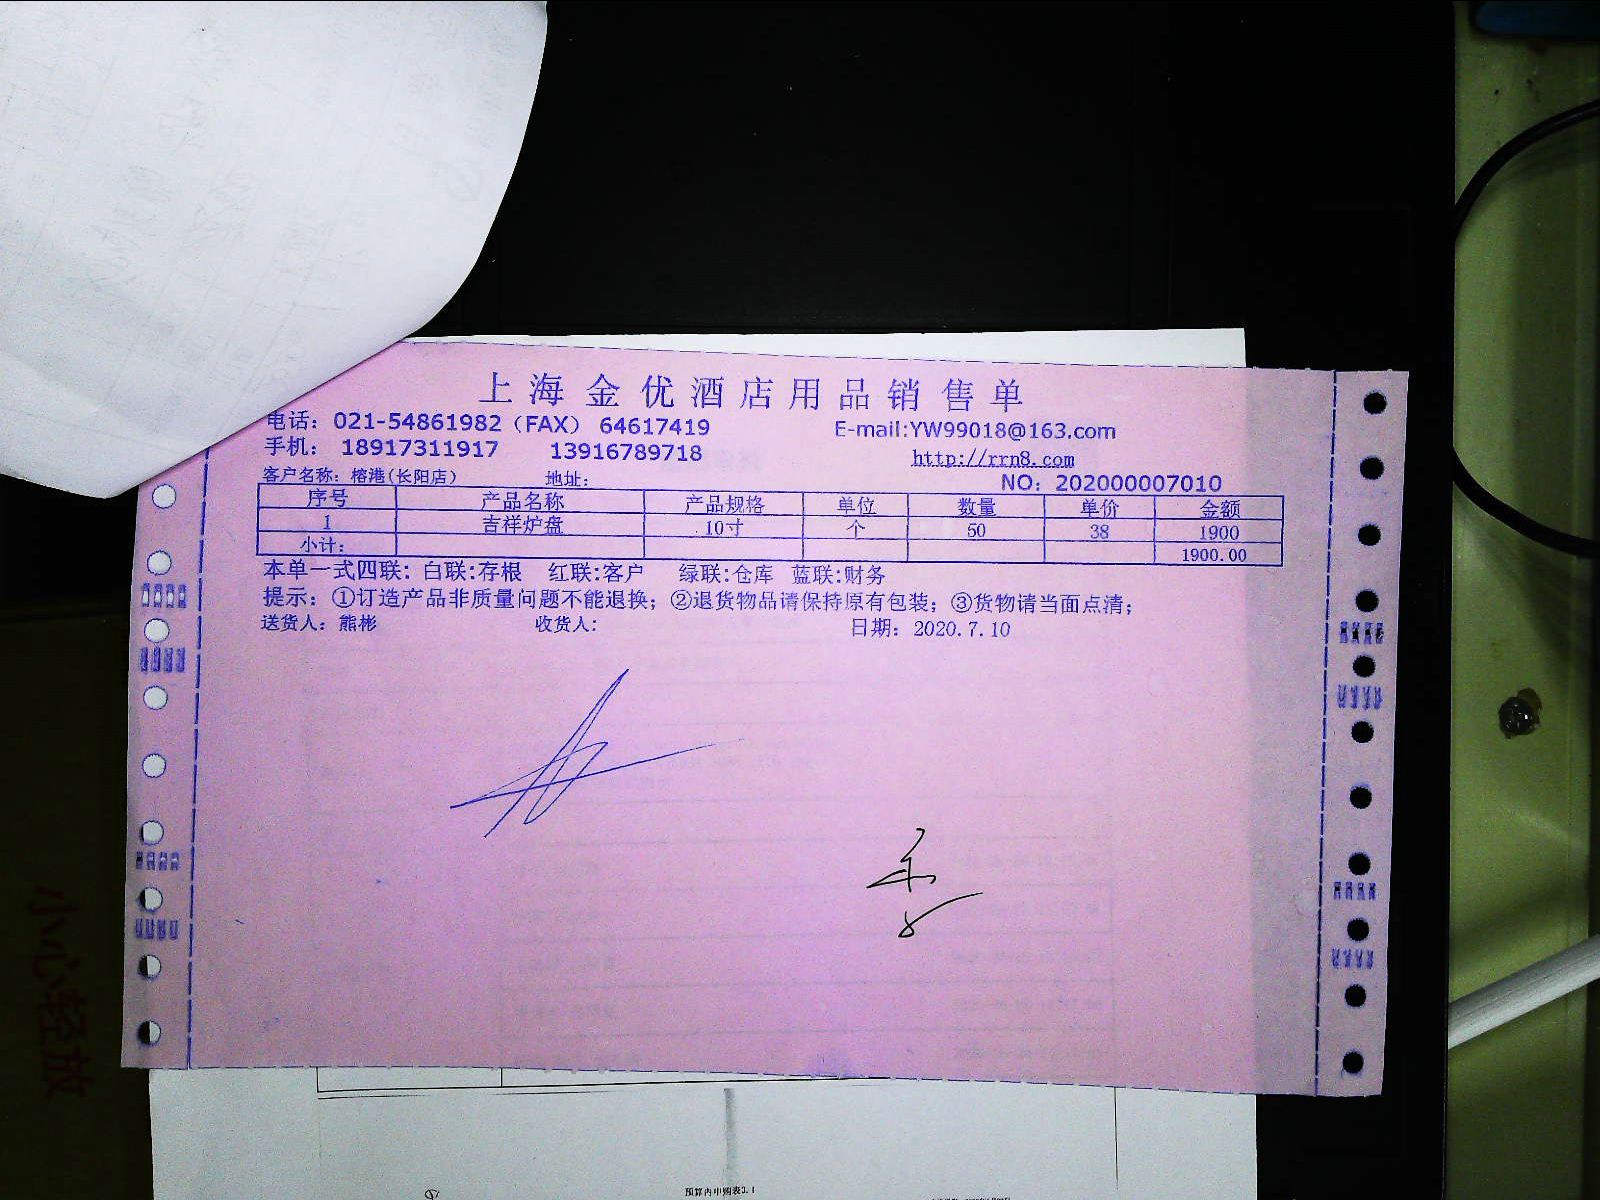 上海金优酒店用品销售单
电话：021-54861982（FAX） 64617419 E-mail:YW99018@163.com
手机： 18917311917 13916789718 http://rrn8.com
客户名称：榕港(长阳店) 地址： NO：202000007010
序号 产品名称 产品规格 单位 数量 单价 金额
1 吉祥炉盘 10寸 个 50 38 1900
小计： 1900.00
本单一式四联：白联:存根 红联:客户 绿联:仓库 蓝联:财务
提示：①订造产品非质量问题不能退换；②退货物品请保持原有包装；③货物请当面点清；
送货人：熊彬 收货人: 日期：2020.7.10
小心轻放
预算内申购表3.1